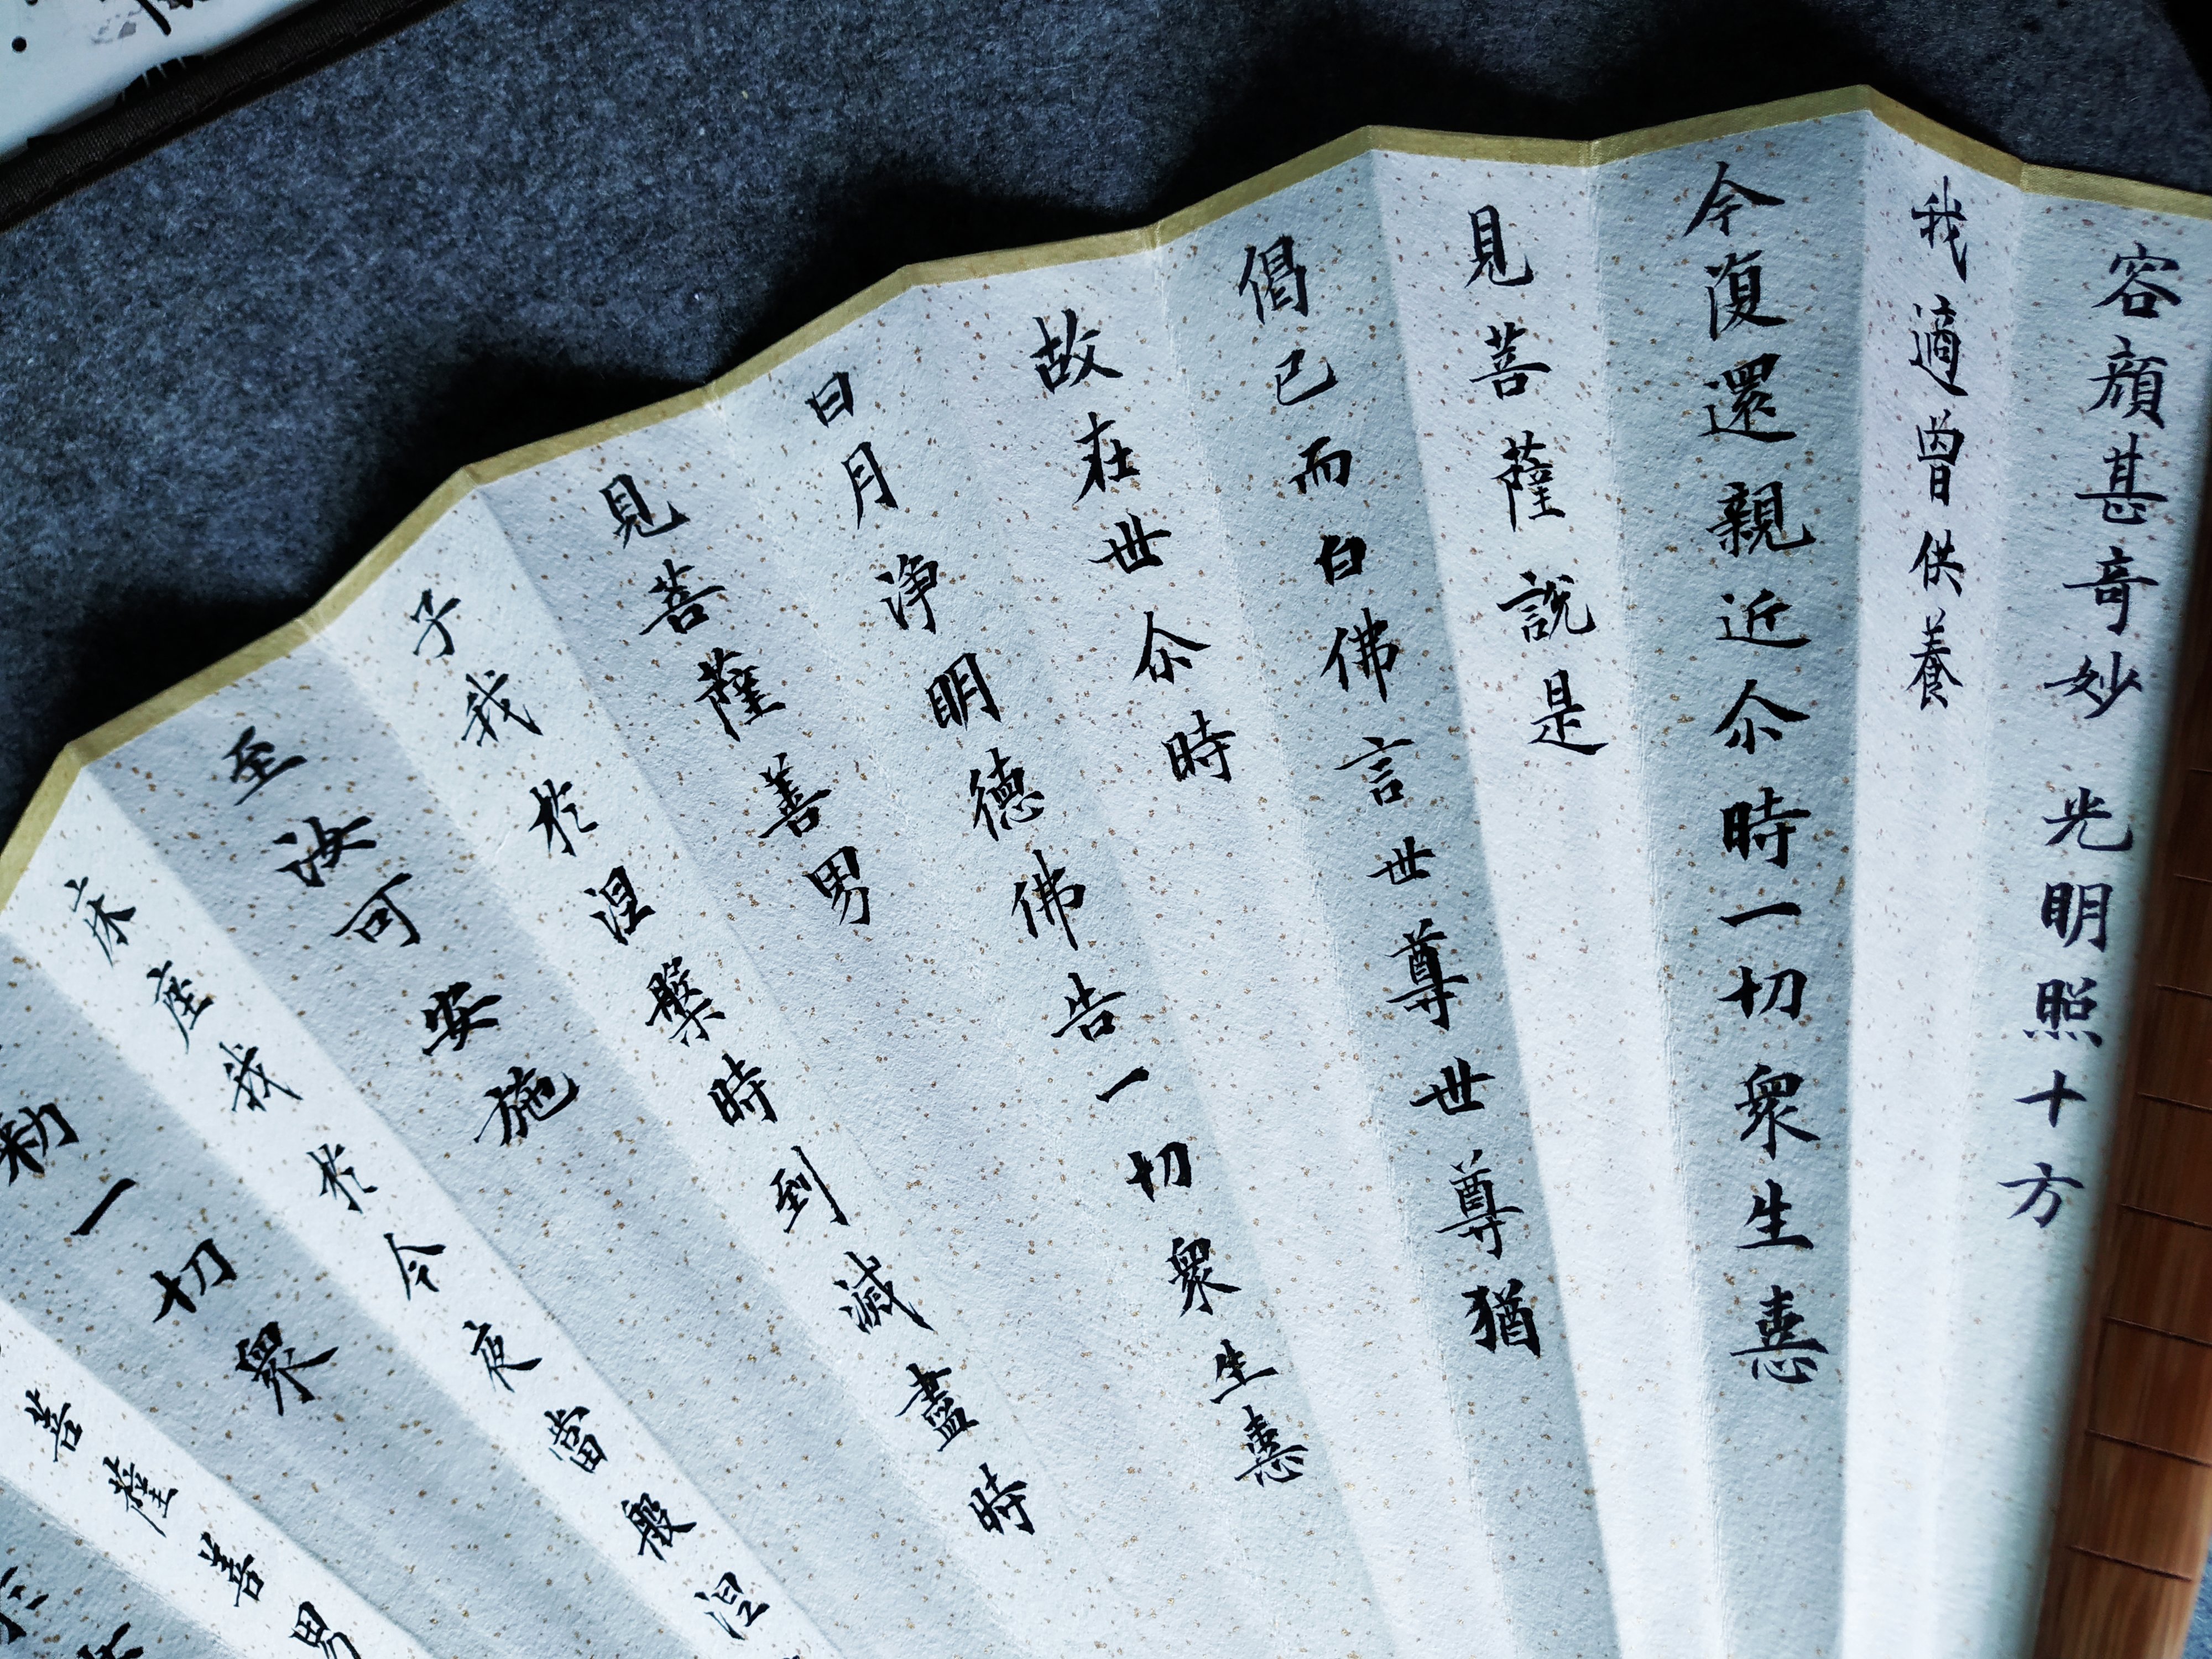 容顏甚奇妙光明照十方
我適曾供養
今復還親近尒時一切衆生憙
見菩薩說是
偈已而白佛言世尊世尊猶
故在世尒時
日月淨明德佛告一切衆生憙
見菩薩善男
子我於涅槃時到滅盡時
至汝可安施
床座我於今夜當般涅
勑一切衆
菩薩善男